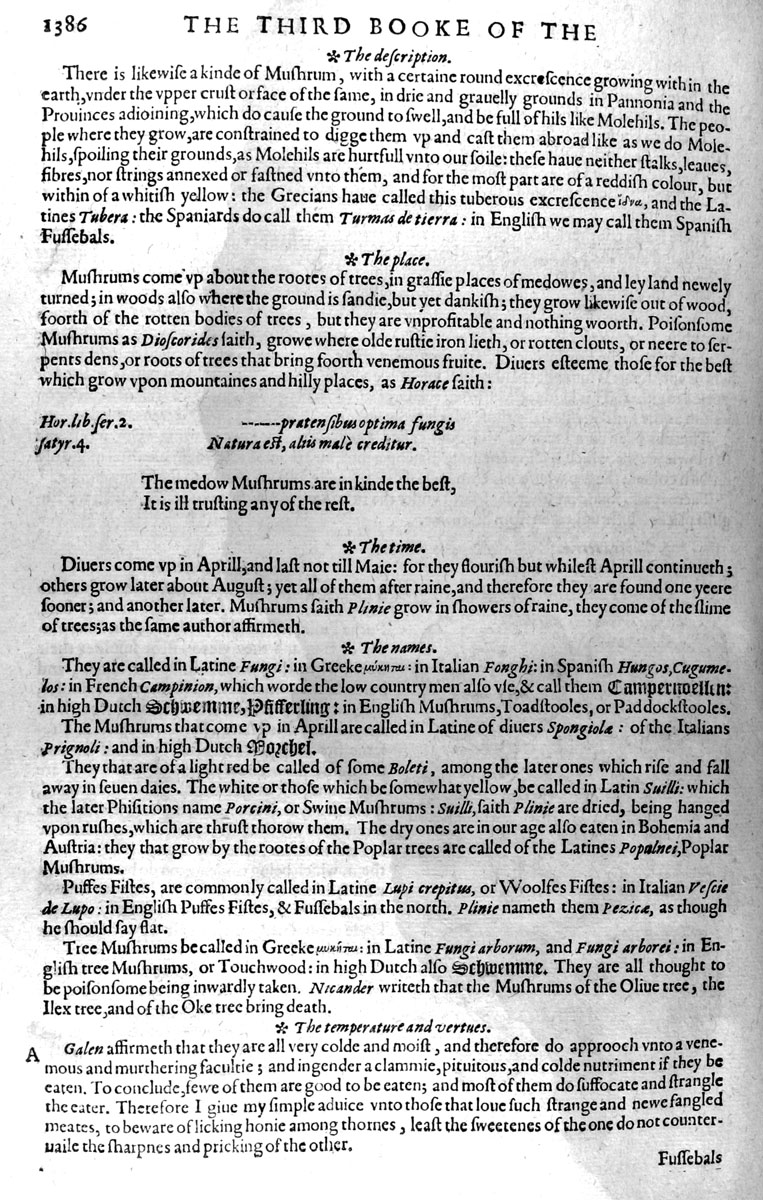 1386 THE THIRD BOOKE OF THE
❊ The deſcription.
There is likewiſe a kinde of Muſhrum, with a certaine round excreſcence growing within the
earth, vnder the vpper cruſt or face of the ſame, in drie and grauelly grounds in Pannonia and the
Prouinces adioining, which do cauſe the ground to ſwell, and be full of hils like Molehils. The peo-
ple where they grow, are conſtrained to digge them vp and caſt them abroad like as we do Mole-
hils, ſpoiling their grounds, as Molehils are hurtfull vnto our ſoile: theſe haue neither ſtalks, leaues,
fibres, nor ſtrings annexed or faſtned vnto them, and for the moſt part are of a reddiſh colour, but
within of a whitiſh yellow: the Grecians haue called this tuberous excreſcence ἴδνα, and the La-
tines Tubera: the Spaniards do call them Turmas de tierra: in Engliſh we may call them Spaniſh
Fuſſebals.
❊ The place.
Muſhrums come vp about the rootes of trees, in graſſie places of medowes, and ley land newely
turned; in woods alſo where the ground is ſandie, but yet dankiſh; they grow likewiſe out of wood,
foorth of the rotten bodies of trees, but they are vnprofitable and nothing woorth. Poiſonſome
Muſhrums as Dioſcorides ſaith, growe where olde ruſtie iron lieth, or rotten clouts, or neere to ſer-
pents dens, or roots of trees that bring foorth venemous fruite. Diuers eſteeme thoſe for the beſt
which grow vpon mountaines and hilly places, as Horace ſaith:
Hor. lib. ſer. 2. ------pratenſibus optima fungis
ſatyr. 4. Natura eſt, aliis malè creditur.
The medow Muſhrums are in kinde the beſt,
It is ill truſting any of the reſt.
❊ The time.
Diuers come vp in Aprill, and laſt not till Maie: for they flouriſh but whileſt Aprill continueth;
others grow later about Auguſt; yet all of them after raine, and therefore they are found one yeere
ſooner; and another later. Muſhrums ſaith Plinie grow in ſhowers of raine, they come of the ſlime
of trees; as the ſame author affirmeth.
❊ The names.
They are called in Latine Fungi: in Greeke μύκηται: in Italian Fonghi: in Spaniſh Hungos, Cugume-
los: in French Campinion, which worde the low country men alſo vſe, & call them Campernoellen:
in high Dutch Schwemme, Pfifferling: in Engliſh Muſhrums, Toadſtooles, or Paddockſtooles.
The Muſhrums that come vp in Aprill are called in Latine of diuers Spongiolæ: of the Italians
Prignoli: and in high Dutch Morchel.
They that are of a light red be called of ſome Boleti, among the later ones which riſe and fall
away in ſeuen daies. The white or thoſe which be ſomewhat yellow, be called in Latin Suilli: which
the later Phiſitions name Porcini, or Swine Muſhrums: Suilli, ſaith Plinie are dried, being hanged
vpon ruſhes, which are thruſt thorow them. The dry ones are in our age alſo eaten in Bohemia and
Auſtria: they that grow by the rootes of the Poplar trees are called of the Latines Popalnei, Poplar
Muſhrums.
Puffes Fiſtes, are commonly called in Latine Lupi crepitus, or Woolfes Fiſtes: in Italian Veſcie
de Lupo: in Engliſh Puffes Fiſtes, & Fuſſebals in the north. Plinie nameth them Pezicæ, as though
he ſhould ſay flat.
Tree Muſhrums be called in Greeke μυκήται: in Latine Fungi arborum, and Fungi arborei: in En-
gliſh tree Muſhrums, or Touchwood: in high Dutch alſo Schwemme. They are all thought to
be poiſonſome being inwardly taken. Nicander writeth that the Muſhrums of the Oliue tree, the
Ilex tree, and of the Oke tree bring death.
❊ The temperature and vertues.
A Galen affirmeth that they are all very colde and moiſt, and therefore do approoch vnto a vene-
mous and murthering facultie; and ingender a clammie, pituitous, and colde nutriment if they be
eaten. To conclude, fewe of them are good to be eaten; and moſt of them do ſuffocate and ſtrangle
the eater. Therefore I giue my ſimple aduice vnto thoſe that loue ſuch ſtrange and newe fangled
meates, to beware of licking honie among thornes, leaſt the ſweetenes of the one do not counter-
uaile the ſharpnes and pricking of the other.
Fuſſebals